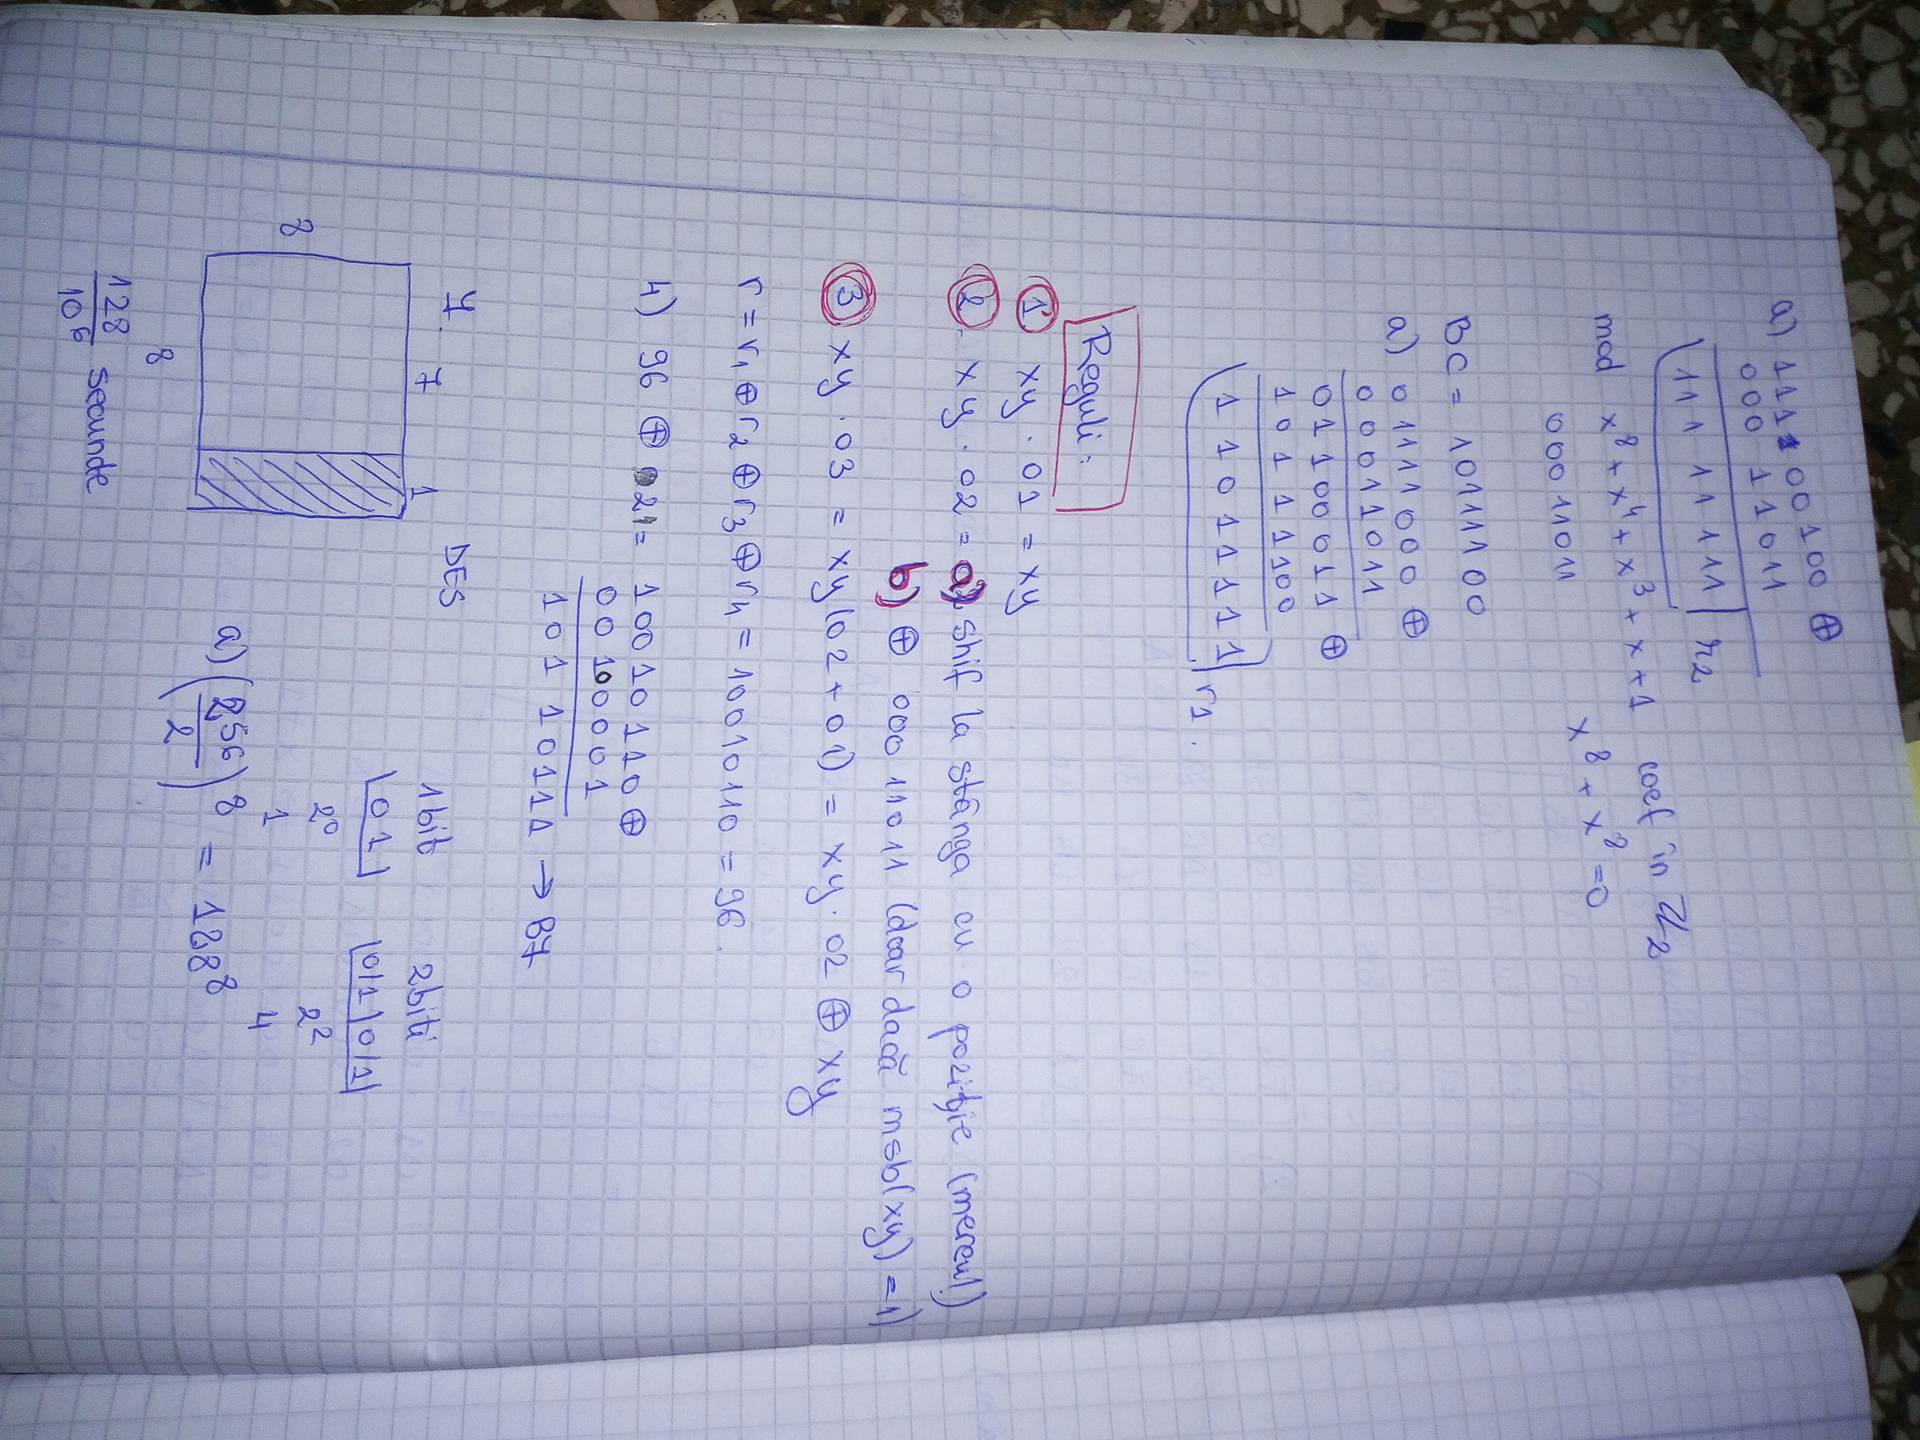 a) 11100100 ⊕
00011011
11111111 | r2
mod x⁸ + x⁴ + x³ + x + 1 coef în ℤ₂
00011011 x⁸ + x⁸ = 0
BC = 10111100
a) 01111000 ⊕
00011011
01100011 ⊕
10111100
11011111 | r1.
Reguli:
1. xy · 01 = xy
2. xy · 02 = a) shif la stânga cu o poziție (mereu!)
b) ⊕ 00011011 (doar dacă msb(xy) = 1)
3 xy · 03 = xy(02 + 01) = xy · 02 ⊕ xy
r = r1 ⊕ r2 ⊕ r3 ⊕ r4 = 10010110 = 96.
4) 96 ⊕ 21 = 10010110 ⊕
00100001
10110111 → B7
4. 7 1 DES 1bit 2biti
8 |0 1| |0/1|0/1|
2⁰ 2²
1 4
8 a) (256/2)⁸ = 128⁸
128/10⁶ secunde